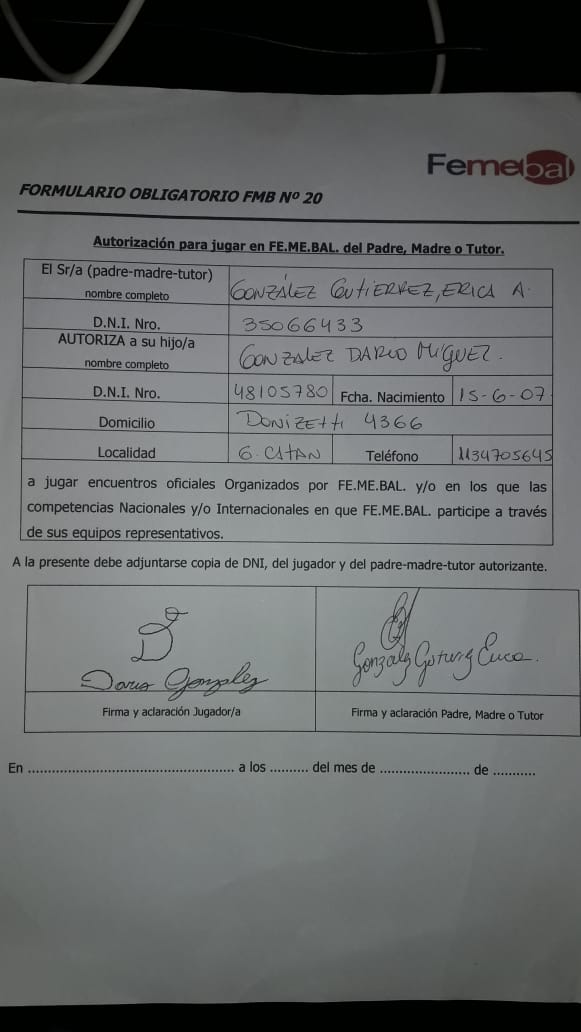 Femebal
FORMULARIO OBLIGATORIO FMB Nº 20
Autorización para jugar en FE.ME.BAL. del Padre, Madre o Tutor.
El Sr/a (padre-madre-tutor)
nombre completo
GONZÁLEZ GUTIERREZ, ERICA A.
D.N.I. Nro. 35066433
AUTORIZA a su hijo/a
nombre completo
GONZALEZ DARIO MIGUEL.
D.N.I. Nro. 48105780 Fcha. Nacimiento 15-6-07
Domicilio DONIZETTI 4366
Localidad G. CATAN Teléfono 1134705645
a jugar encuentros oficiales Organizados por FE.ME.BAL. y/o en los que las
competencias Nacionales y/o Internacionales en que FE.ME.BAL. participe a través
de sus equipos representativos.
A la presente debe adjuntarse copia de DNI, del jugador y del padre-madre-tutor autorizante.
Dario Gonzalez
Gonzalez Gutierrez Erica.
Firma y aclaración Jugador/a
Firma y aclaración Padre, Madre o Tutor
En .................................................... a los .......... del mes de ....................... de ...........